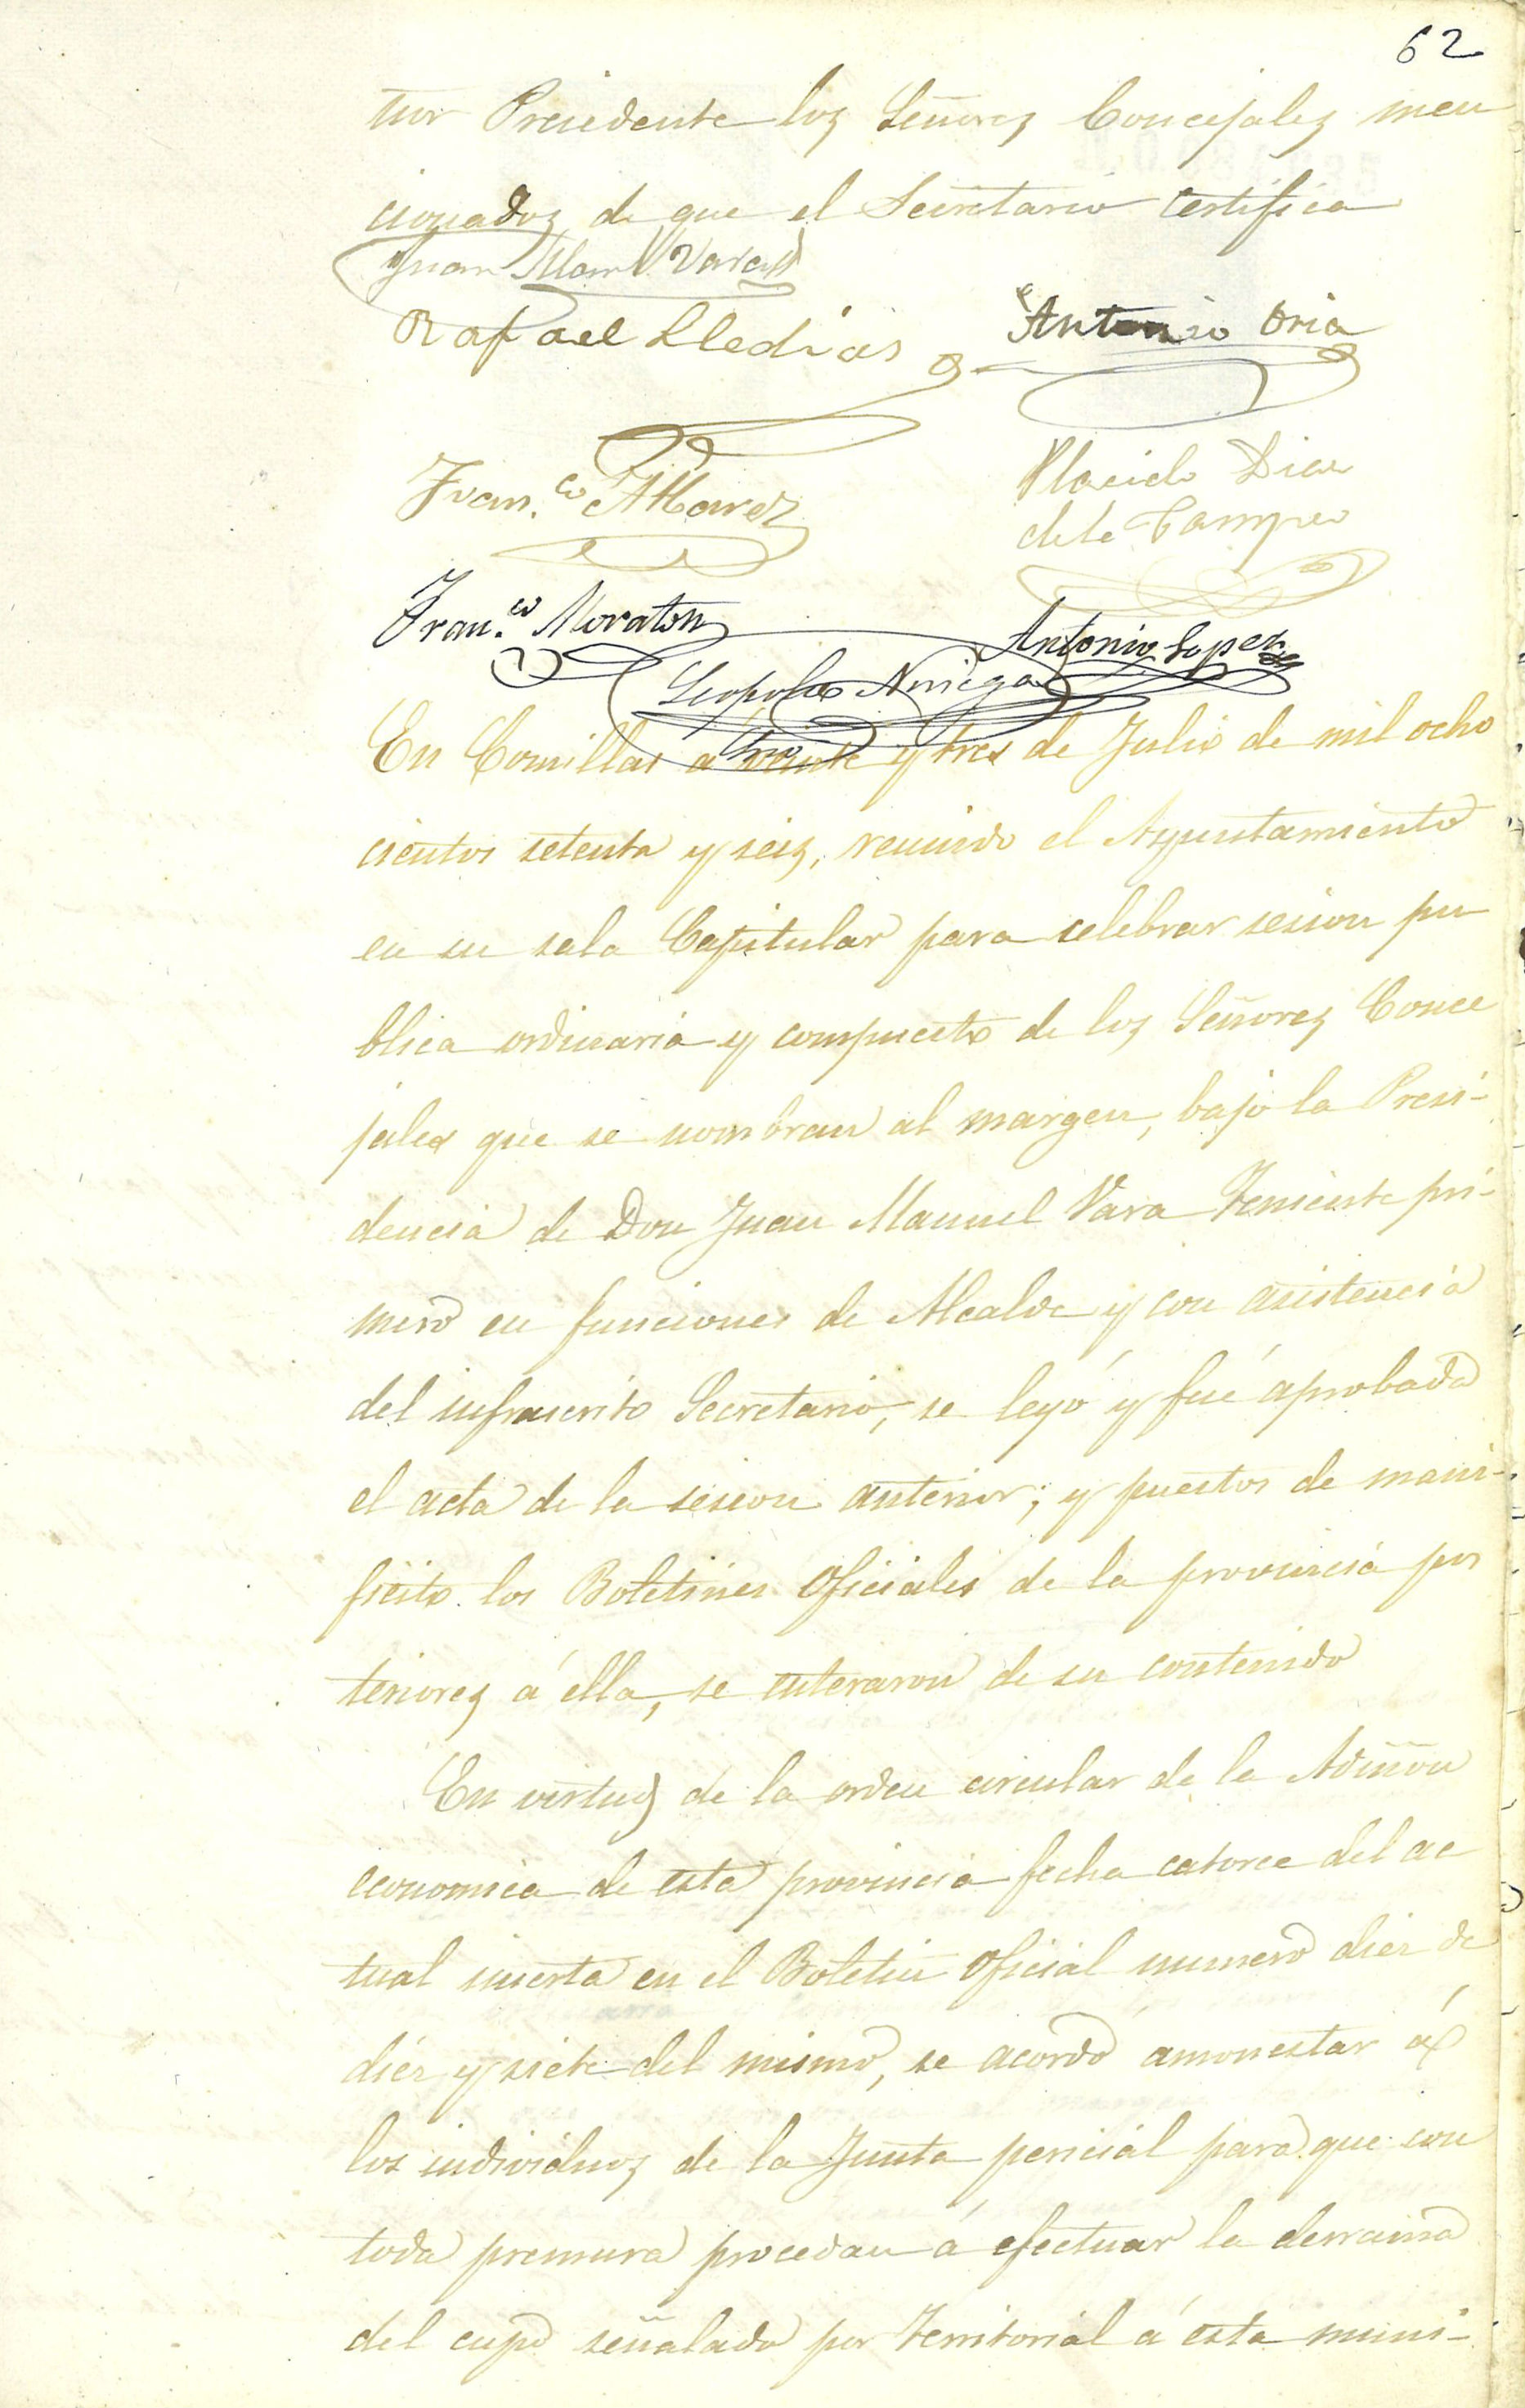 62
ñor Presidente los Señores Concejales men
cionados de que el Secretario certifica
Juan Man.l Vara
Rafael Lledias
Antonio Oria
Fran.co Alvarez
Placido Diaz
de la Campa
Fran.co Moraton
Antonio Lopez
Leopoldo Noriega
Srio
En Comillas á veinte y tres de Julio de mil ocho
cientos setenta y seis, reunido el Ayuntamiento
en su sala Capitular para celebrar sesion pu
blica ordinaria y compuesto de los Señores Conce
jales que se nombran al margen, bajo la Presi-
dencia de Don Juan Manuel Vara Teniente pri-
mero en funciones de Alcalde y con asistencia
del infrascrito Secretario, se leyó y fué aprobada
el acta de la sesion anterior; y puestos de mani-
fiesto los Boletines Oficiales de la provincia pos
teriores á ella, se enteraron de su contenido
En virtud de la orden circular de la Admon
economica de esta provincia fecha catorce del ac
tual inserta en el Boletin Oficial numero diez de
diez y siete del mismo, se acordó amonestar á
los individuos de la Junta pericial para que con
toda premura procedan á efectuar la derrama
del cupo señalado por Territorial á esta muni-